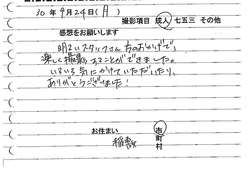 30年9月24日(月)
撮影項目 成人 七五三 その他
感想をお願いします
明るいスタッフさん方のおかげで、
楽しく撮影することができました。
いろいろ気にかけていただいたり、
ありがとうございました!
お住まい
稲敷 市町村